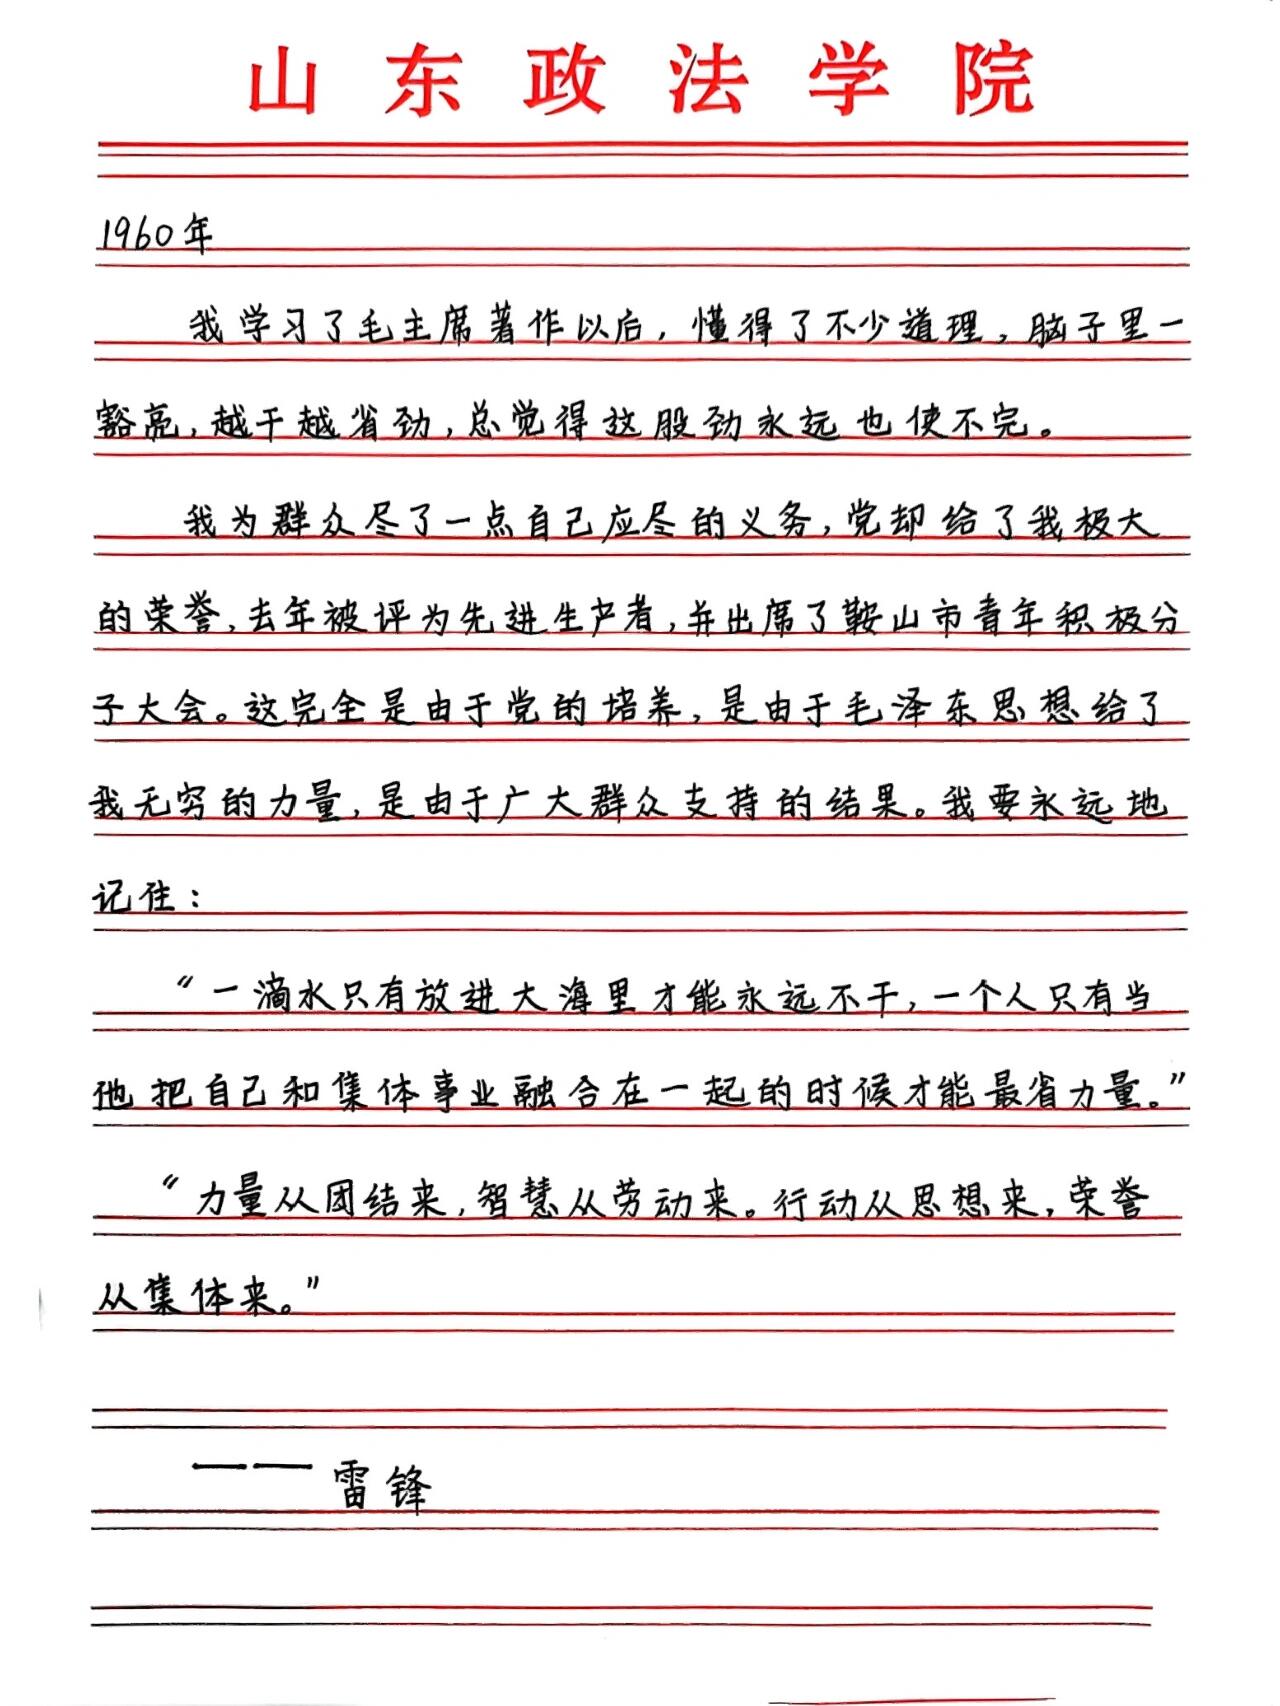 山东政法学院
1960年
我学习了毛主席著作以后，懂得了不少道理，脑子里一
豁亮，越干越省劲，总觉得这股劲永远也使不完。
我为群众尽了一点自己应尽的义务，党却给了我极大
的荣誉，去年被评为先进生产者，并出席了鞍山市青年积极分
子大会。这完全是由于党的培养，是由于毛泽东思想给了
我无穷的力量，是由于广大群众支持的结果。我要永远地
记住：
“一滴水只有放进大海里才能永远不干，一个人只有当
他把自己和集体事业融合在一起的时候才能最省力量。”
“力量从团结来，智慧从劳动来。行动从思想来，荣誉
从集体来。”
——雷锋